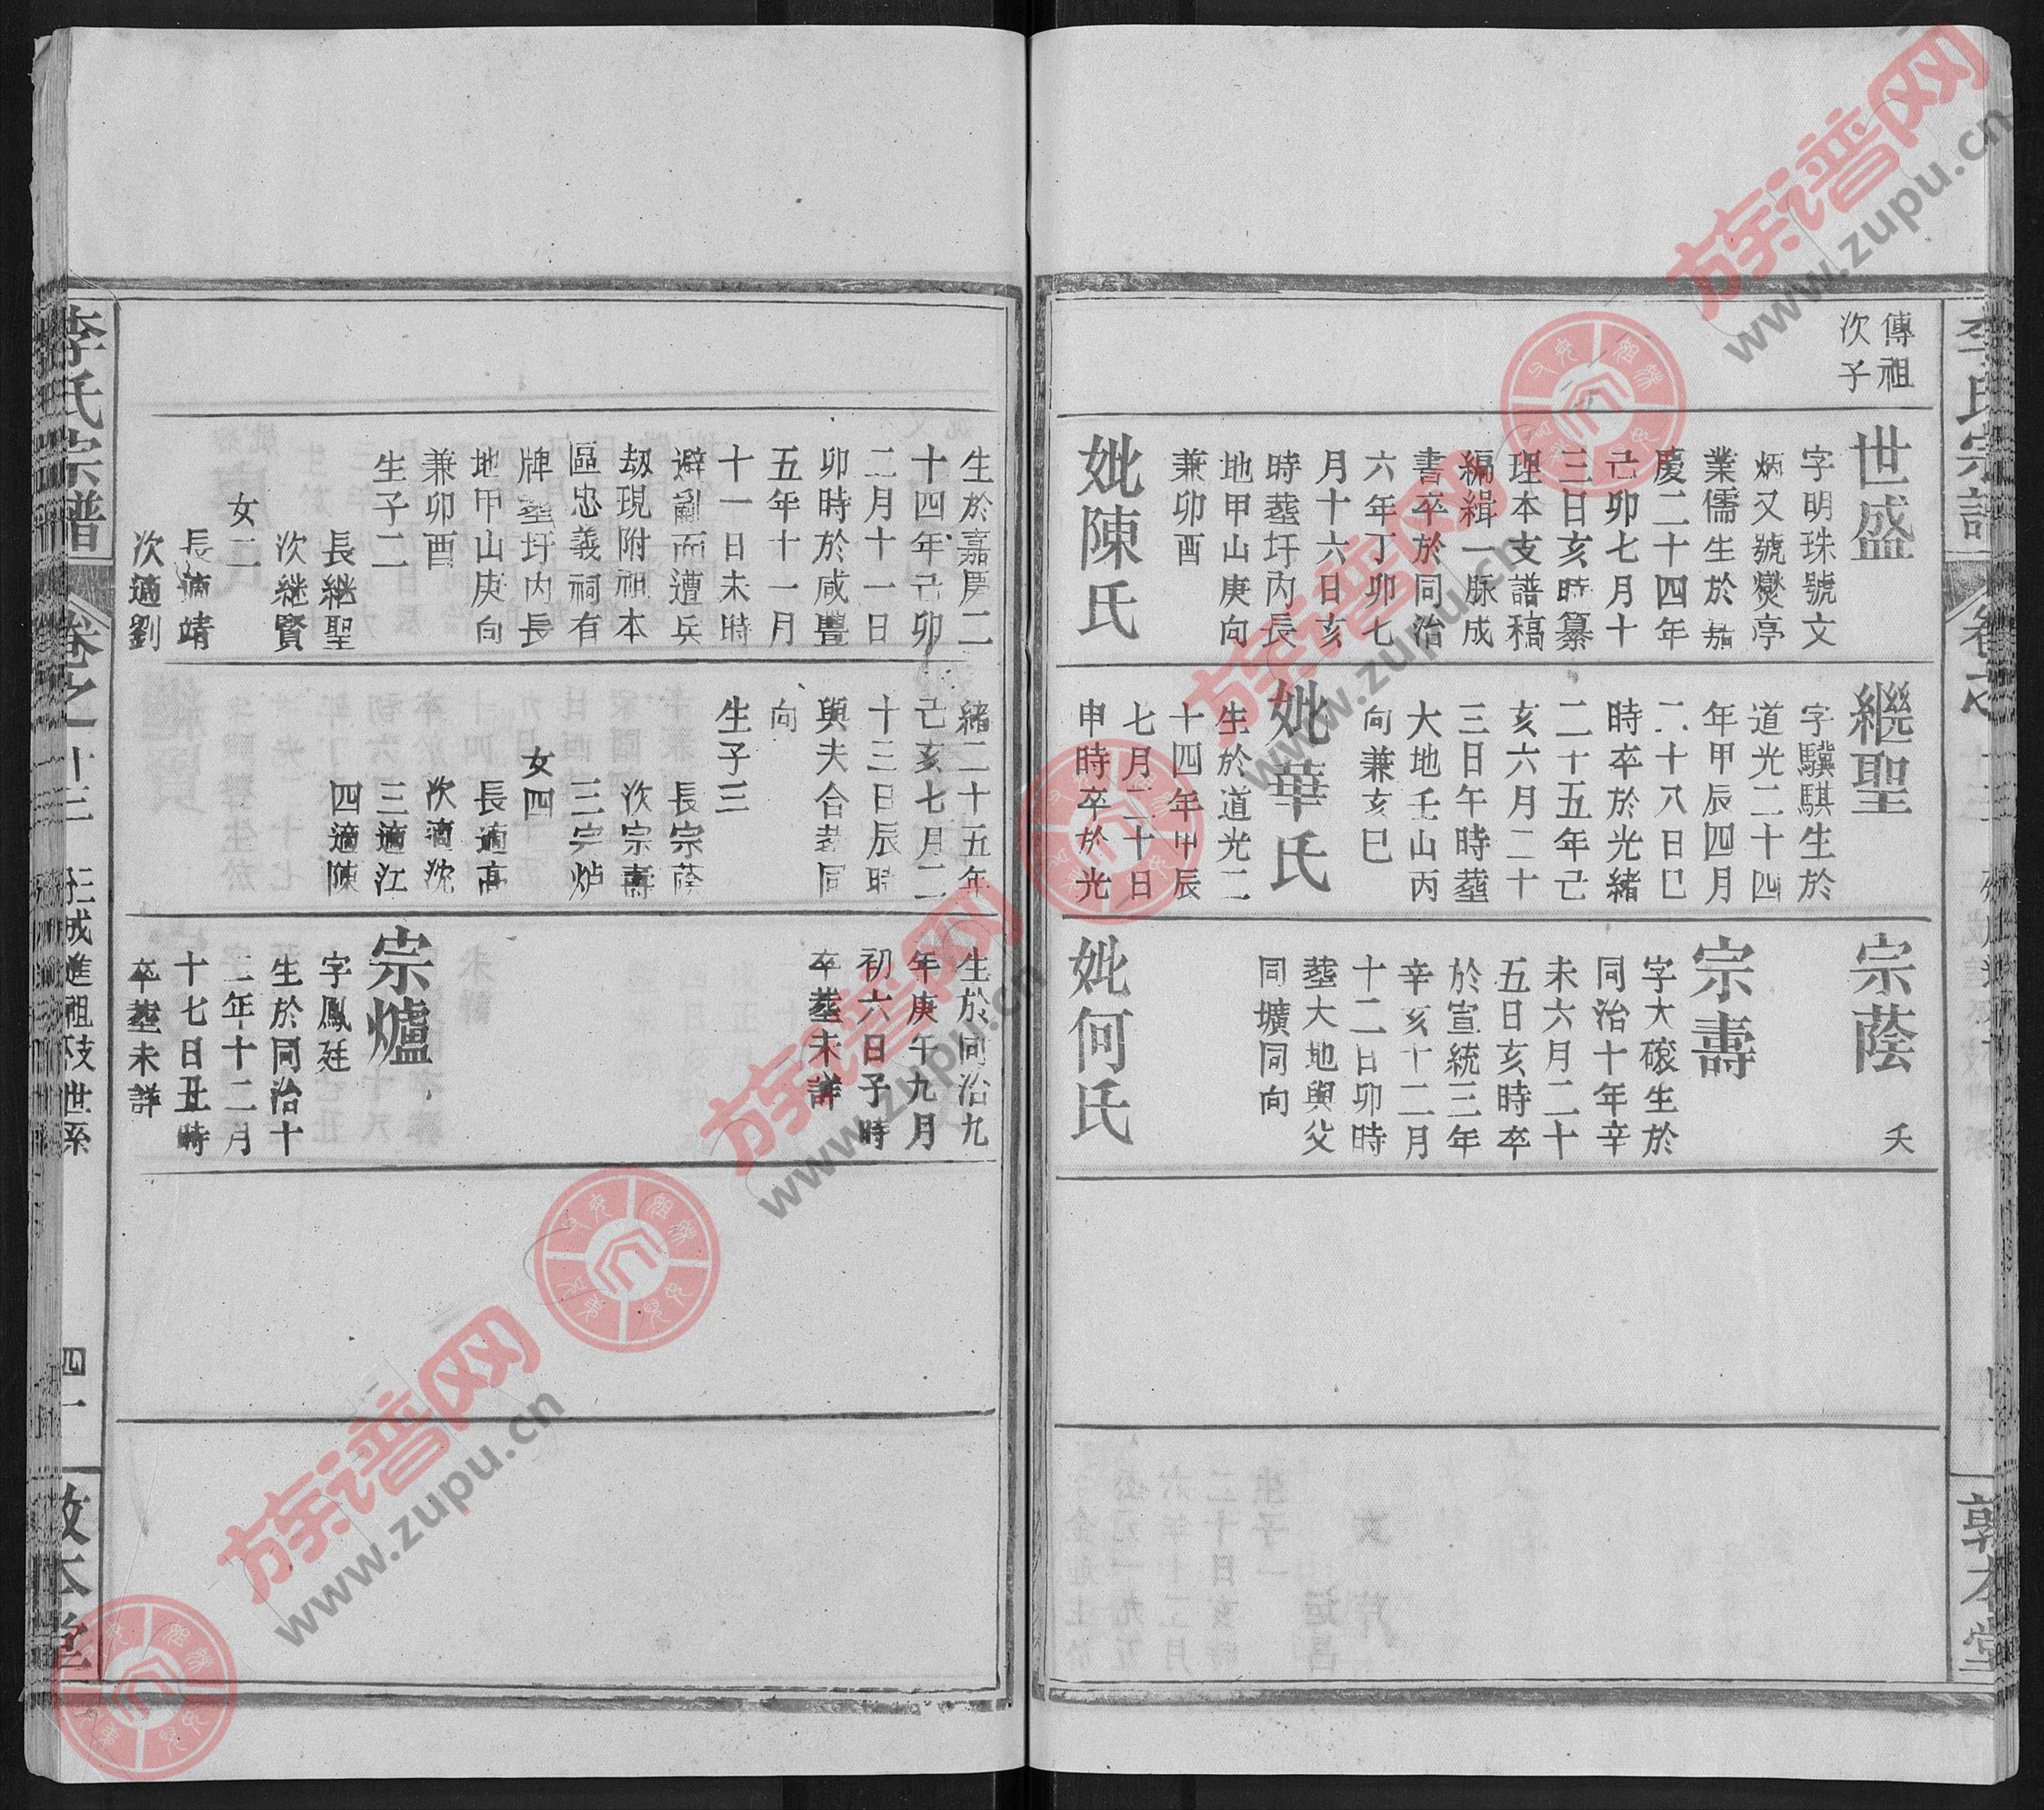 傳祖
次子
世盛
字明珠號文
炳又號爕亭
業儒生於嘉
慶二十四年
己卯七月十
三日亥時纂
理本支譜稿
編緝一脉成
書卒於同治
六年丁卯七
月十六日亥
時塟圩内長
地甲山庚向
兼卯酉
妣陳氏
繼聖
字驥騏生於
道光二十四
年甲辰四月
二十八日巳
時卒於光緒
二十五年己
亥六月二十
三日午時塟
大地壬山丙
向兼亥巳
妣華氏
生於道光二
十四年甲辰
七月二十日
申時卒於光
宗蔭
夭
宗壽
字大磙生於
同治十年辛
未六月二十
五日亥時卒
於宣統三年
辛亥十二月
十二日卯時
塟大地與父
同壙同向
妣何氏
敦本堂
生於嘉慶二
十四年己卯
二月十一日
卯時於咸豐
五年十一月
十一日未時
避亂而遭兵
刼現附祖本
區忠義祠有
牌塟圩内長
地甲山庚向
兼卯酉
生子二
長繼聖
次継賢
女二
長適靖
次適劉
緒二十五年
己亥七月二
十三日辰時
與夫合塟同
向
生子三
長宗蔭
次宗壽
三宗炉
女四
長適高
次適沈
三適江
四適陳
生於同治九
年庚午九月
初六日子時
卒塟未詳
宗爐
字鳳廷
生於同治十
二年十二月
十七日丑時
卒塟未詳
李氏宗譜
卷之十三
成進祖枝世系
四十一
敦本堂
族谱网
www.zupu.cn
族谱网
www.zupu.cn
族谱网
www.zupu.cn
族谱网
www.zupu.cn